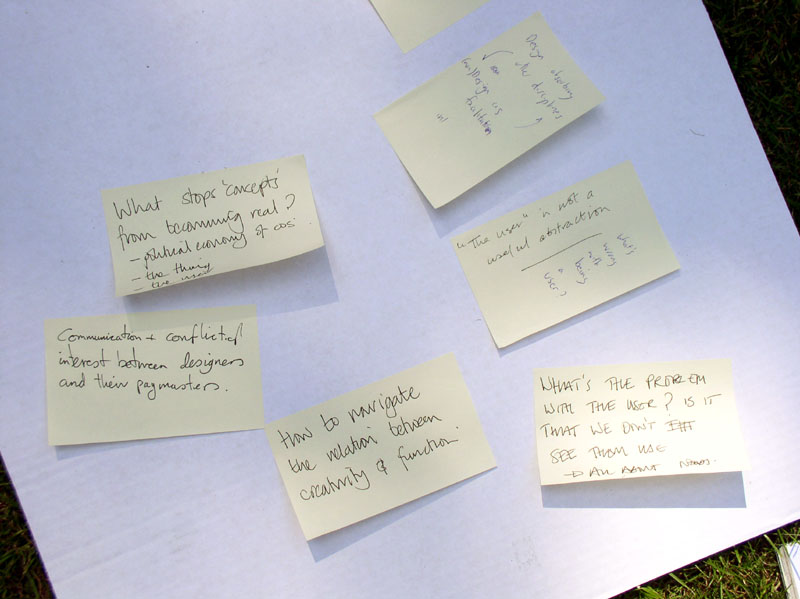 Design absorbing
other disciplines
or
Design as
facilitation
What stops 'concepts'
from becoming real?
- political economy of cos.
- the thing
- the
"The user" is not a
useful abstraction
what's
wrong
with
being
a
user?
Communication + conflict of
interest between designers
and their paymasters.
How to navigate
the relation between
creativity & function.
WHAT'S THE PROBLEM
WITH THE USER? IS IT
THAT WE DON'T
SEE THEM USE
→ ALL ABOUT NEEDS.